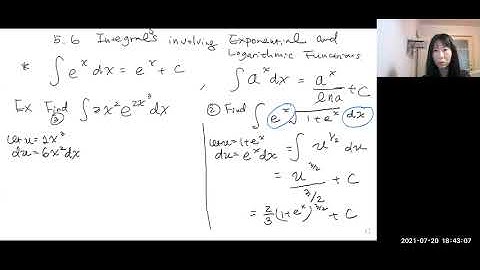 5.6 Integrals involving Exponential and
Logarithmic Functions
* ∫ e^x dx = e^x + C , ∫ a^x dx = a^x / ln a + C
Ex Find ∫ 2x² e^{2x³} dx
①
let u = 2x³
du = 6x² dx
② Find ∫ e^x √(1+e^x) dx
let u = 1+e^x
du = e^x dx
= ∫ u^{1/2} du
= u^{3/2} / 3/2 + C
= 2/3 (1+e^x)^{3/2} + C
2021-07-20 18:43:07